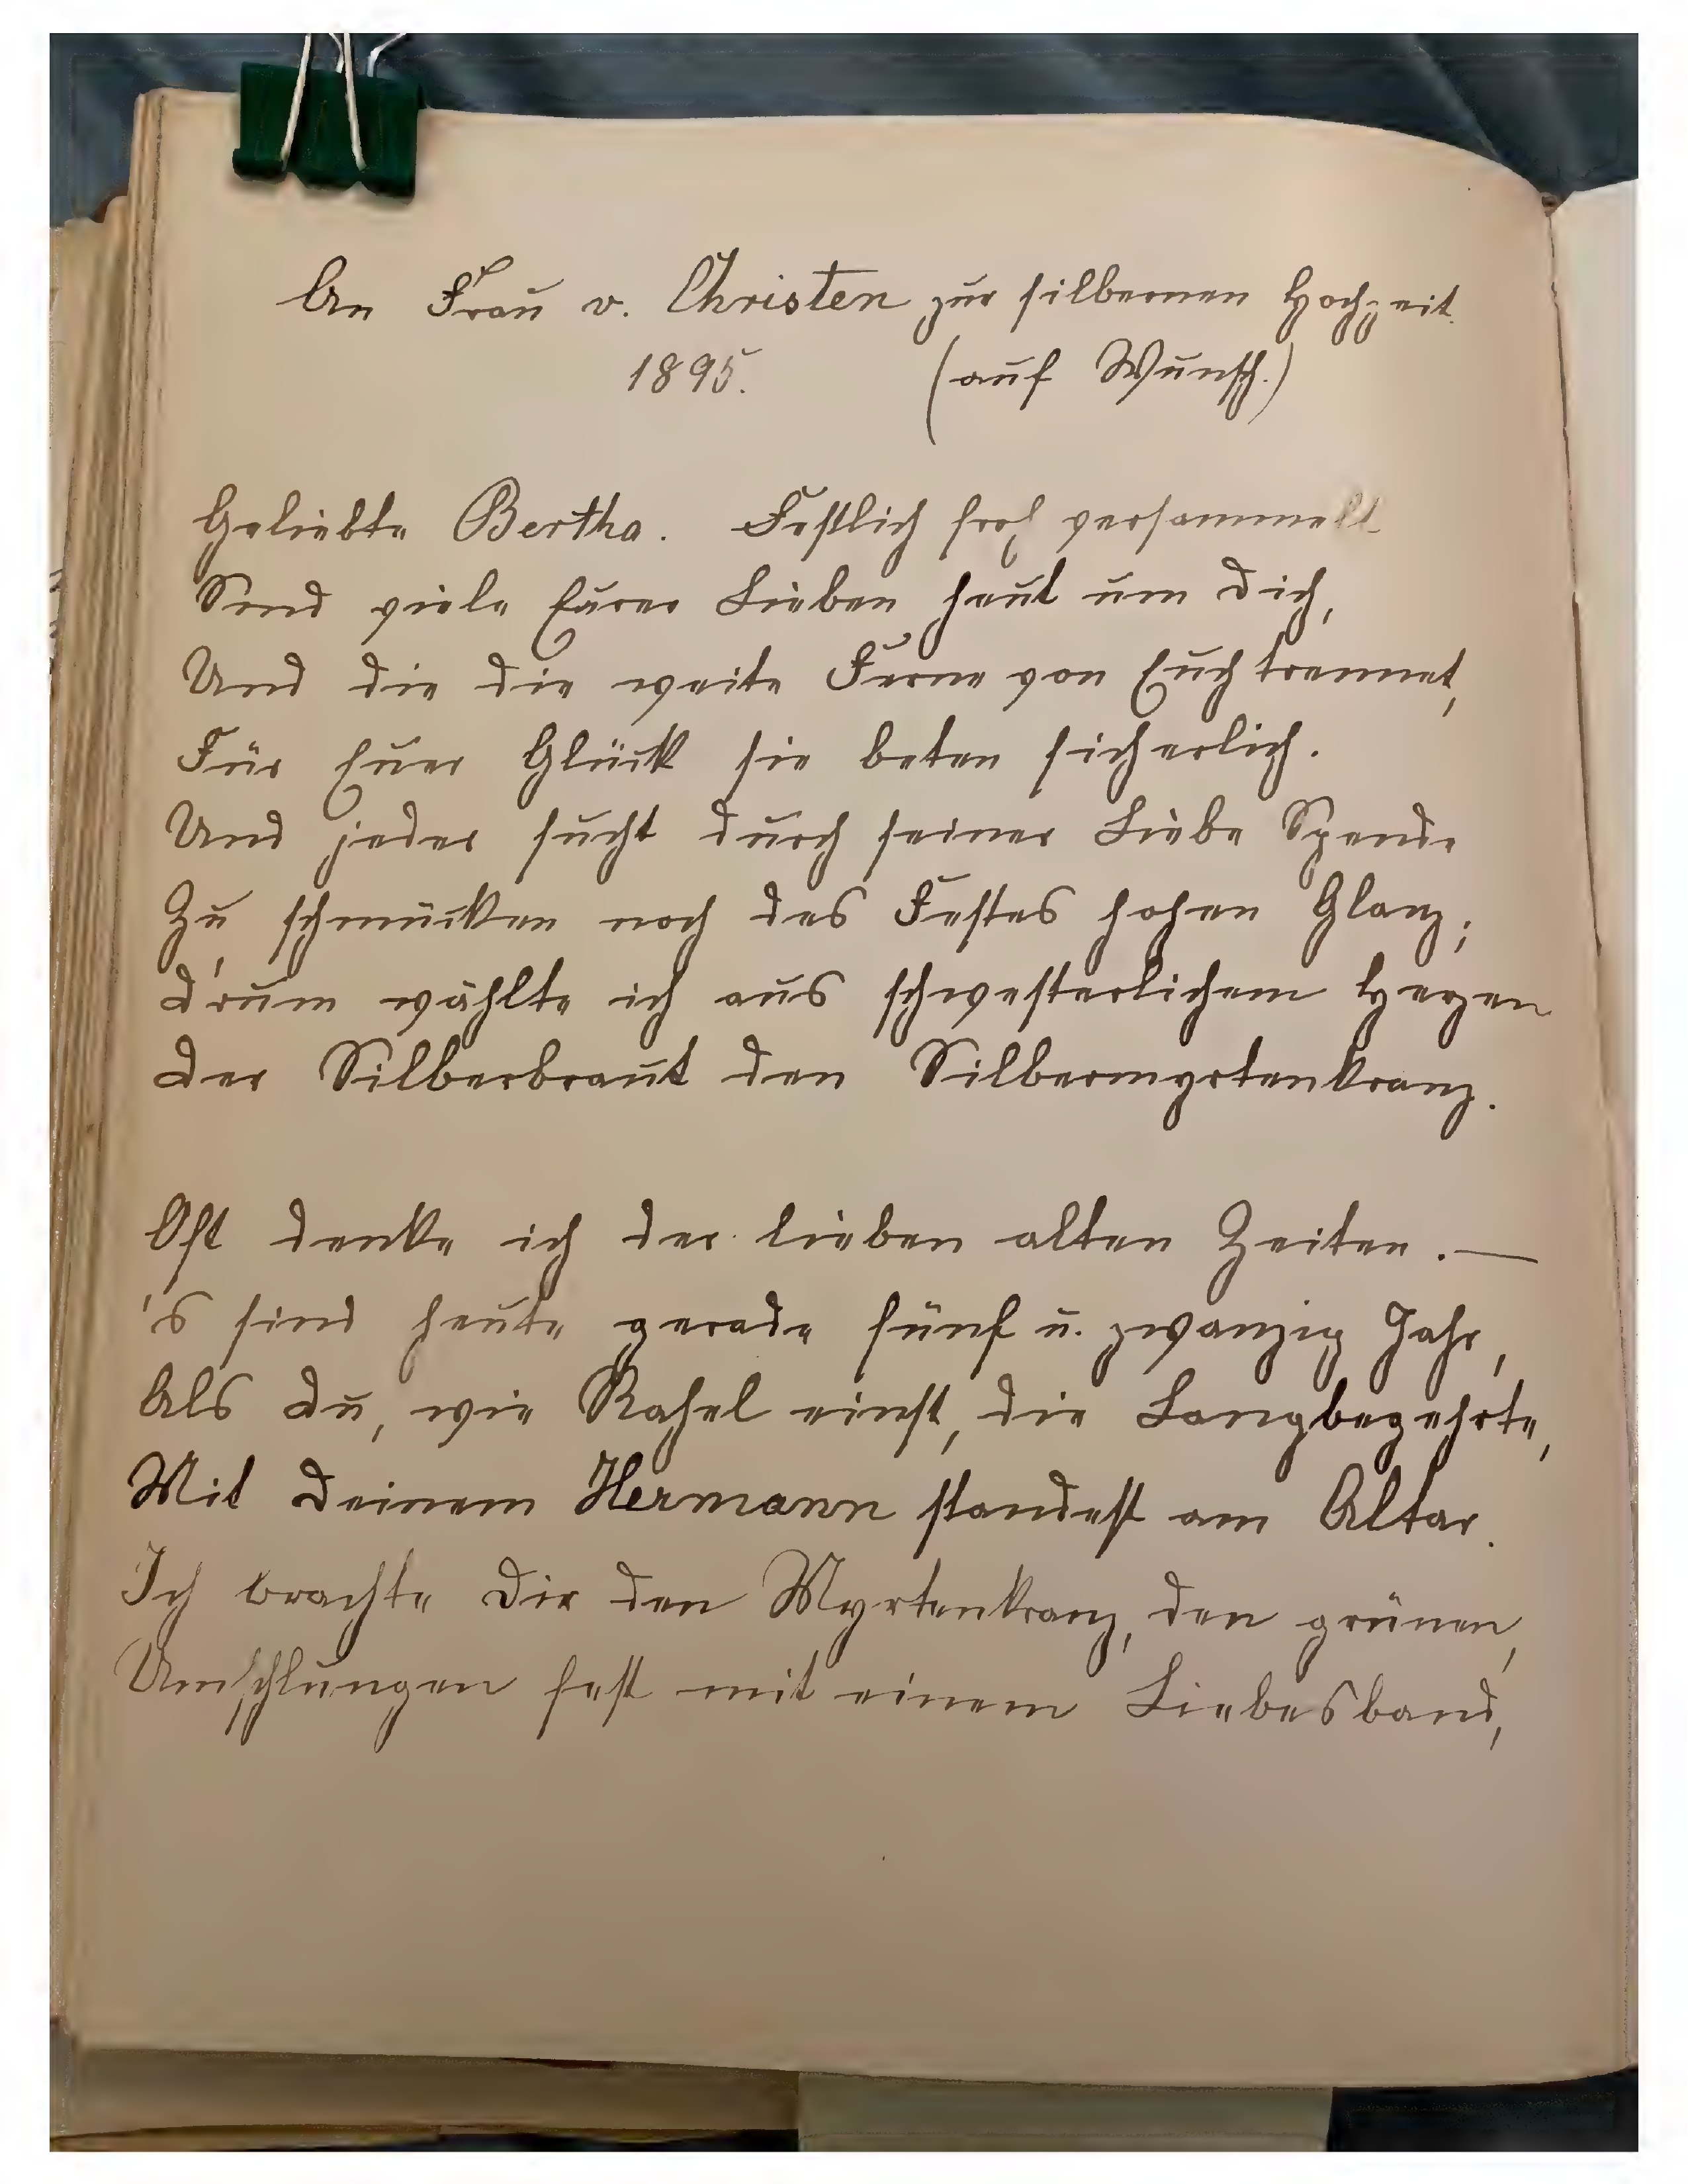 An Frau v. Christen zur silbernen Hochzeit.
1895. (auf Wunsch.)
Geliebte Bertha. Festlich froh versammelt
Sind viele Eurer Lieben heut um Dich,
Und die die weite Ferne von Euch trennet,
Für Euer Glück sie beten sicherlich.
Und jeder sucht durch seiner Liebe Spende
Zu schmücken noch des Festes hohen Glanz;
D'rum wählte ich aus schwesterlichem Herzen
Der Silberbraut den Silbermyrtenkranz.
Oft denke ich der lieben alten Zeiten. —
's sind heute gerade fünf u. zwanzig Jahr,
Als Du, wie Rahel einst, die Langbegehrte,
Mit Deinem Hermann standest am Altar.
Ich brachte Dir den Myrtenkranz, den grünen,
Umschlungen fest mit einem Liebesband,